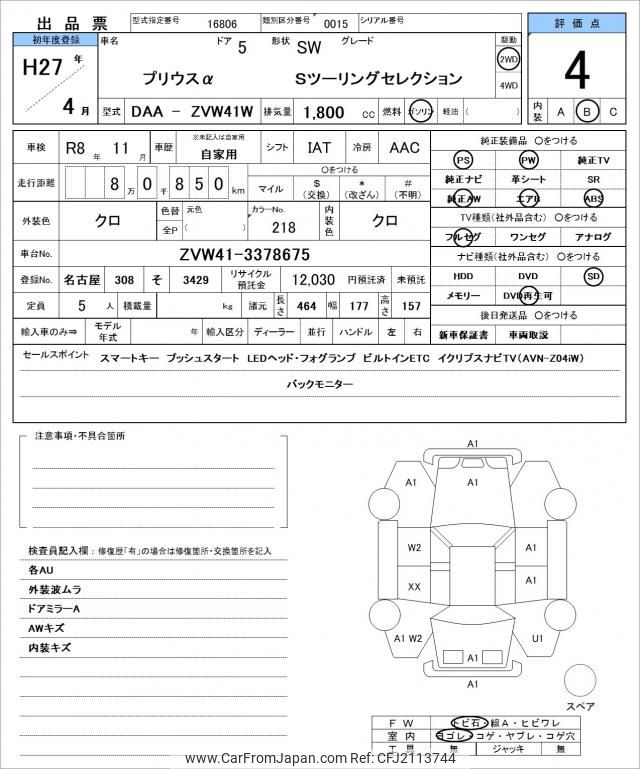 出品票 型式指定番号 16806 類別区分番号 0015 シリアル番号
評価点
初年度登録 車名 ドア 5 形状 SW グレード 駆動
H27 年 プリウスα Sツーリングセレクション 2WD 4
4WD
4 月 型式 DAA - ZVW41W 排気量 1,800 cc 燃料 ガソリン 軽油 ( ) 内装 A B C
車検 R8 年 11 月 車歴 ※未記入は自家用 自家用 シフト IAT 冷房 AAC
走行距離 8 万 0 千 8 5 0 km 〇をつける
マイル $ (交換) * (改ざん) # (不明)
外装色 クロ 色替 元色 カラーNo. 内装色 クロ
全P 218
車台No. ZVW41-3378675
登録No. 名古屋 308 そ 3429 リサイクル預託金 12,030 円預託済 未預託
定員 5 人 積載量 kg 諸元 長さ 464 幅 177 高さ 157
輸入車のみ⇒ モデル年式 年 輸入区分 ディーラー 並行 ハンドル 左 右
純正装備品 〇をつける
PS PW 純正TV
純正ナビ 革シート SR
純正AW エアB ABS
TV種類(社外品含む) 〇をつける
フルセグ ワンセグ アナログ
ナビ種類(社外品含む) 〇をつける
HDD DVD SD
メモリー DVD再生可
後日発送品 〇をつける
新車保証書 車両取説
セールスポイント スマートキー プッシュスタート LEDヘッド・フォグランプ ビルトインETC イクリプスナビTV(AVN-Z04iW)
バックモニター
注意事項・不具合箇所
検査員記入欄：修復歴「有」の場合は修復箇所・交換箇所を記入
各AU
外装波ムラ
ドアミラーA
AWキズ
内装キズ
A1
A1 A1
W2 A1
XX A1
A1 W2 U1
A1
A1
スペア
FW トビ石・線A・ヒビワレ
室内 ヨゴレ・コゲ・ヤブレ・コゲ穴
工具 無 ジャッキ 無
www.CarFromJapan.com Ref: CFJ2113744